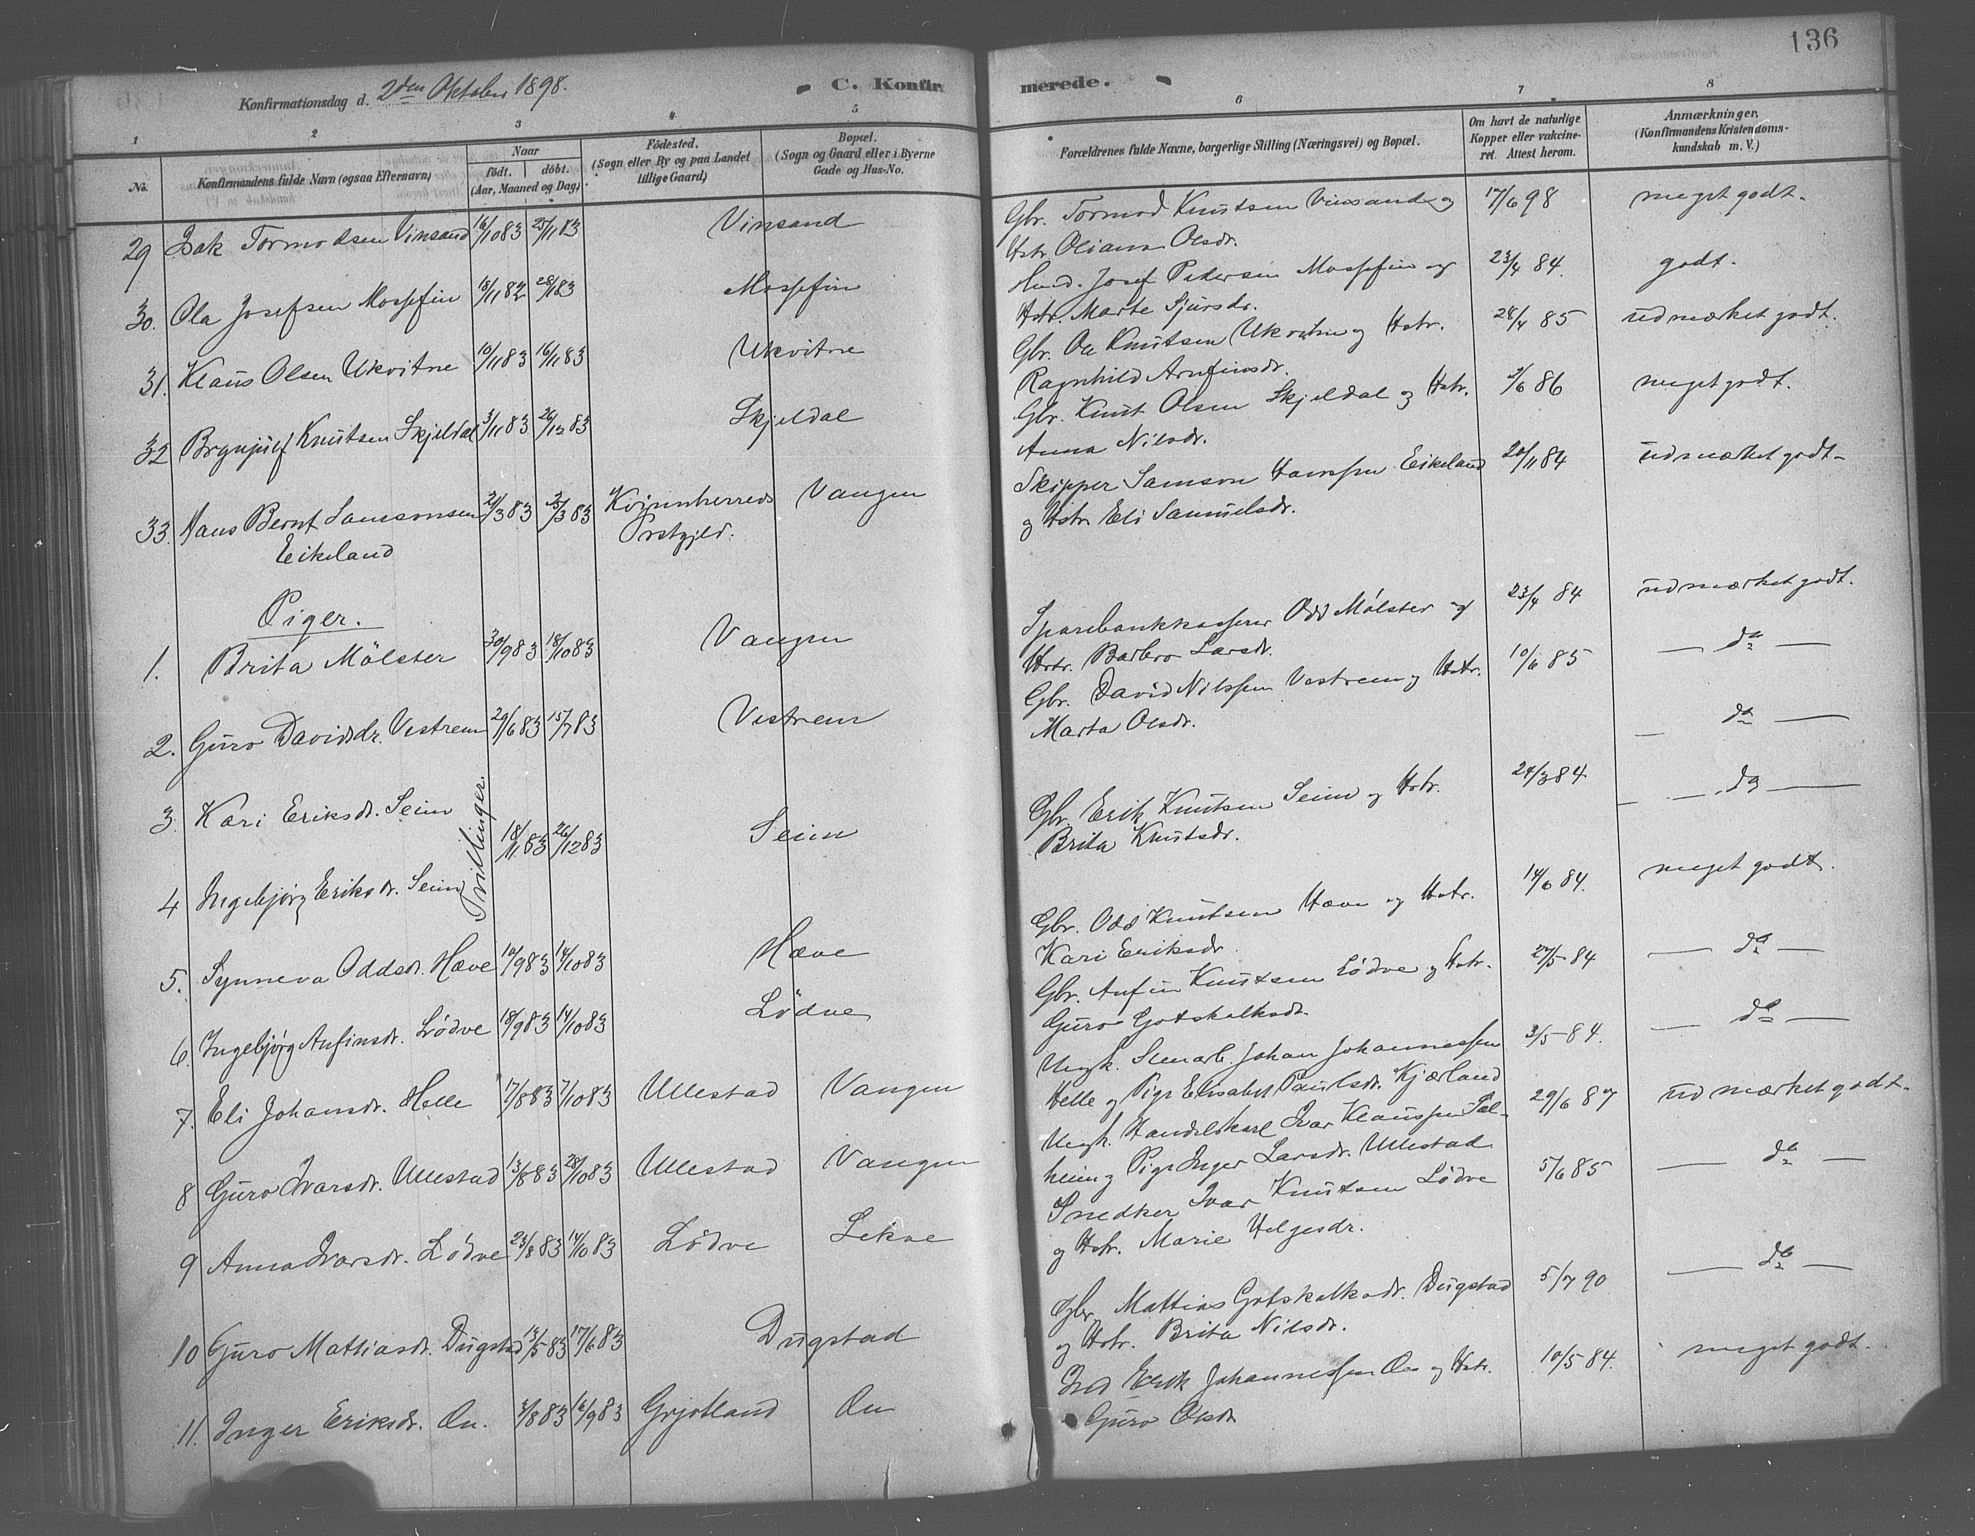 136
Konfirmationsdag d. 2den Oktober 1898.
C. Konfirmerede.
1 2 3 4 5 6 7 8
No.
Konfirmandens fulde Navn (ogsaa Efternavn)
Naar
födt. döbt.
(Aar, Maaned og Dag)
Födested.
(Sogn eller By og paa Landet
tillige Gaard)
Bopæl.
(Sogn og Gaard eller i Byerne
Gade og Hus-No.
Forældrenes fulde Navne, borgerlige Stilling (Næringsvei) og Bopæl.
Om havt de naturlige
Kopper eller vakcine-
ret. Attest herom.
Anmærkninger.
(Konfirmandens Kristendoms-
kundskab m. V.)
29 Isak Tormodsen Vinsand 16/10 83 25/11 83 Vinsand Gbr. Tormod Knutsen Vinsand og 17/6 98 meget godt.
Hstr. Oliana Olsdr.
30. Ola Josefsen Mosefin 18/11 82 28/1 83 Mosefin Husmd. Josef Pedersen Mosefin og 23/4 84. godt.
Hstr. Marte Sjursdr.
31. Klaus Olsen Ukvitne 10/11 83 16/11 83 Ukvitne Gbr. Ole Knutsen Ukvitne og Hstr. 28/4 85 udmærket godt.
Ragnhild Arnfinsdr.
32 Brynjulf Knutsen Skjeldal 3/11 83 26/12 83 Skjeldal Gbr. Knut Olsen Skjeldal og Hstr. /6 86 meget godt.
Anna Nilsdr.
33. Hans Bernt Samsonsen /3 83 /3 83 Kvinnherreds Vangen Skipper Samson Hanssen Eikeland 20/11 84 udmærket godt.
Eikeland Prstgjld. og Hstr. Eli Samuelsdr.
Piger.
1. Brita Mölster 30/9 83 18/10 83 Vangen Sparebankkasserer Odd Mölster og 23/4 84 udmærket godt.
Hstr. Barbro Larsdr.
2. Guro Davidsdr. Vestrem 29/6 83 15/7 83 Vestrem Gbr. David Nilssen Vestrem og Hstr. 10/6 85 — do —
Marta Olsdr.
3. Kari Eriksdr. Seim — do —
Tvillinger. 18/11 83 26/12 83 Seim Gbr. Erik Knutsen Seim og Hstr. 24/3 84.
Brita Knutsdr.
4 Ingebjørg Eriksdr. Seim — do —
5. Synneva Oddsdr. Hæve 10/9 83 14/10 83 Hæve Gbr. Odd Knutsen Hæve og Hstr. 14/6 84. meget godt.
Kari Eriksdr.
6. Ingebjørg Anfinsdr. Lödve 18/9 83 14/10 83 Lödve Gbr. Anfin Knutsen Lödve og Hstr. 27/5 84 — do —
Guro Gotskalksdr.
7. Eli Johansdr. Helle 17/8 83 7/10 83 Ullestad Vangen Ungk. Stenarb. Johan Johannessen 3/5 84. — do —
Helle og Pige Elisabet Paulsdr. Kjærland
8 Guro Ivarsdr. Ullestad 13/8 83 28/10 83 Ullestad Vangen Ungk. Handelskarl Ivar Klaussen Sæl- 29/6 87 udmærket godt.
heim og Pige Inger Larsdr. Ullestad
9 Anna Ivarsdr. Lödve 23/8 83 14/10 83 Lödve Lekve Snedker Ivar Knutsen Lödve 5/6 85 — do —
og Hstr. Marie Helgesdr.
10 Guro Mathiasdr. Dugstad 13/5 83 17/6 83 Dugstad Gbr. Mattias Gotskalksdr. Dugstad 5/7 90 — do —
og Hstr. Brita Nilsdr.
11. Inger Eriksdr. Øn. /8 83 16/9 83 Grjotland Øn Erik Johannessen Øn og Hstr. 10/5 84. meget godt.
Guro Olsdr